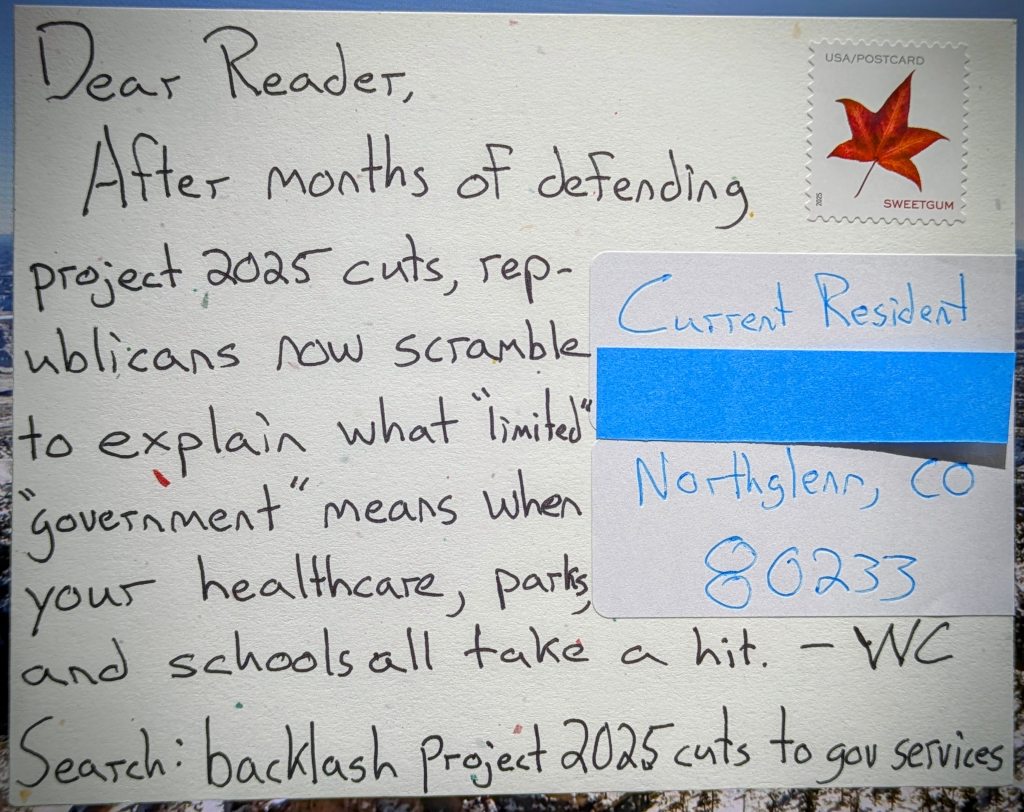 Dear Reader,
USA/POSTCARD
2025
SWEETGUM
After months of defending
project 2025 cuts, rep-
ublicans now scramble
to explain what "limited"
"government" means when
your healthcare, parks,
and schools all take a hit. - WC
Search: backlash project 2025 cuts to gov services
Current Resident
Northglenn, CO
80233